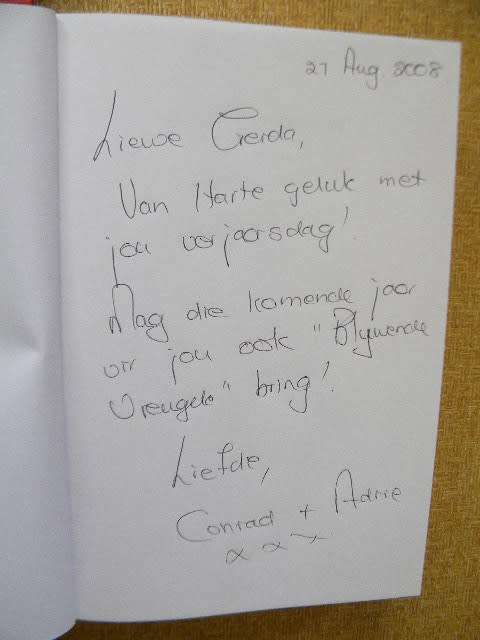 27 Aug 2008
Liewe Gerda,
Van Harte geluk met
jou verjaarsdag!
Mag die komende jaar
vir jou ook "Blywende
Vreugde" bring!
Liefde,
Conrad + Adrie
x x x